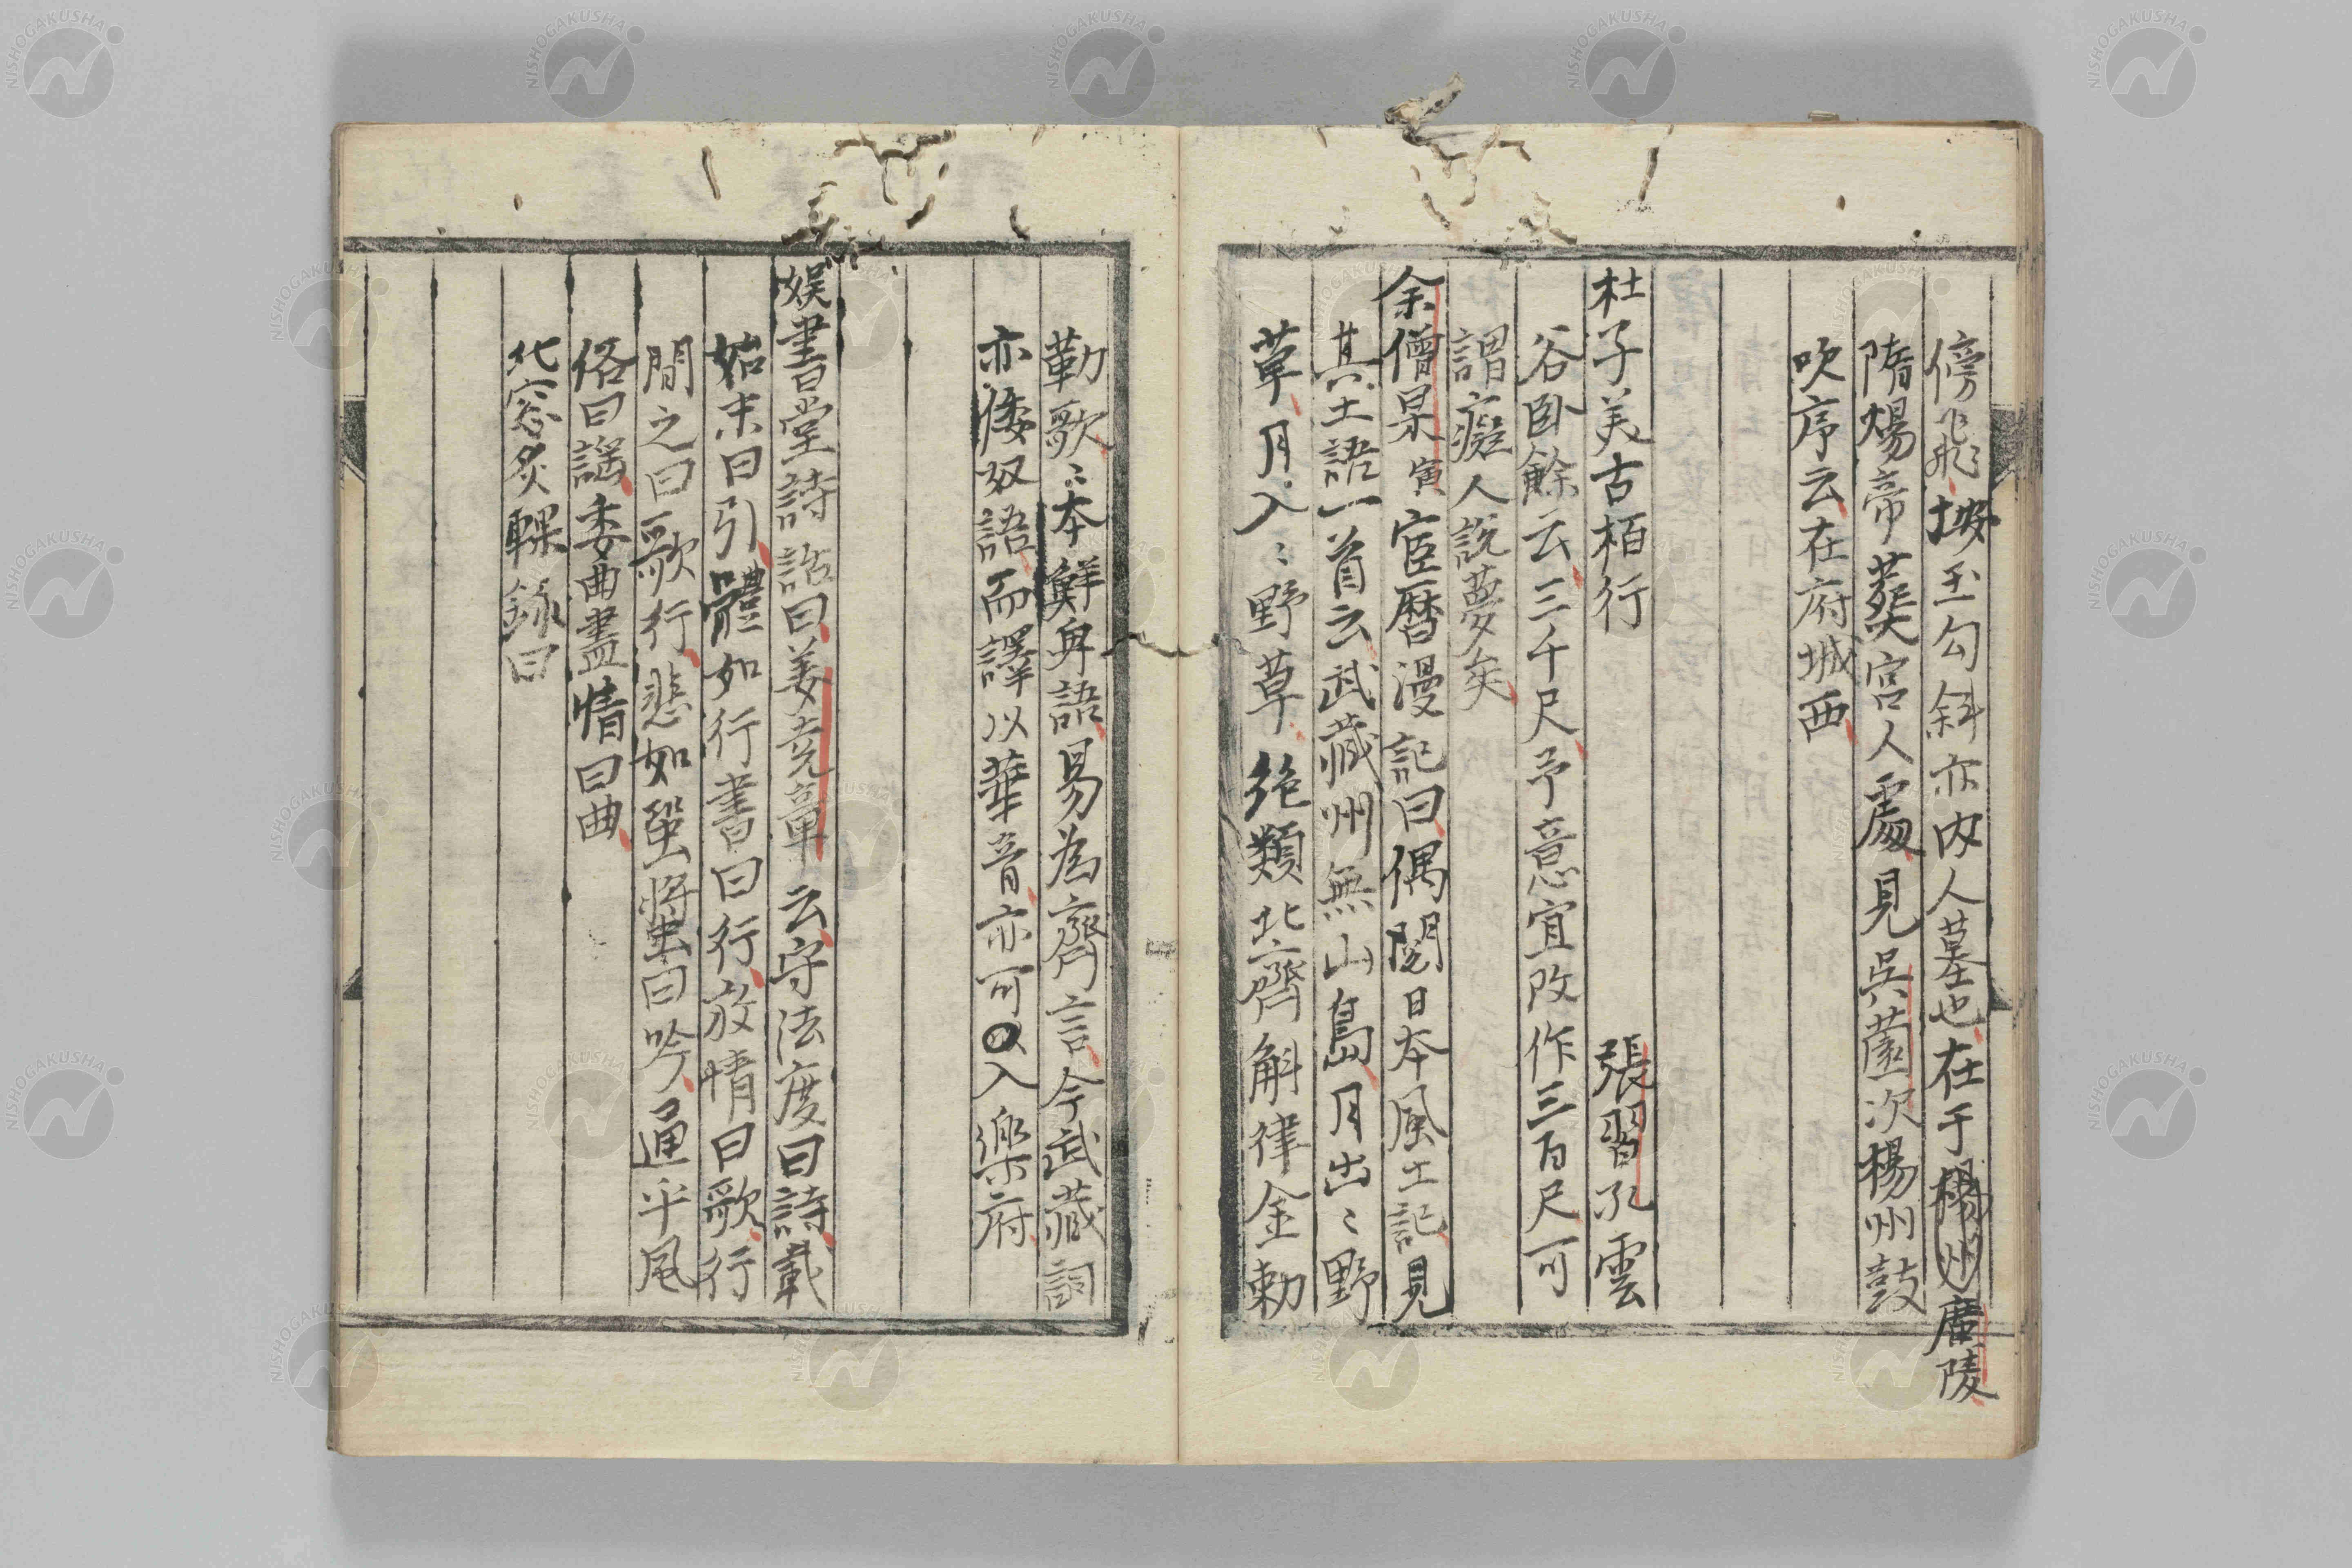 傍飛、按玉勾斜亦内人墓也、在于楊州廣陵、
隋煬帝葬宮人處、見呉薗次楊州鼓
吹序云、在府城西、
杜子美古栢行　張習孔雲
谷卧餘云、三千尺、予意宜改作三百尺可
謂癡人説夢矣、
余僧杲寅宦暦漫記曰、偶閲日本風土記、見
其土語一首云、武藏州無山島、月出〻野
草、月入〻野草、絶類北齊斛律金勅
勒歌、〻本鮮卑語、易為齊言、今武藏詞
亦倭奴語、而譯以華音、亦可入樂府、
娯書堂詩話曰、姜堯章云、守法度曰詩、載
始末曰引、體如行書曰行、放情曰歌、行
間之曰歌行、悲如蛩螿曰吟、通乎風
俗曰謡、委曲盡情曰曲、
北窓炙輠錄曰
NISHOGAKUSHA